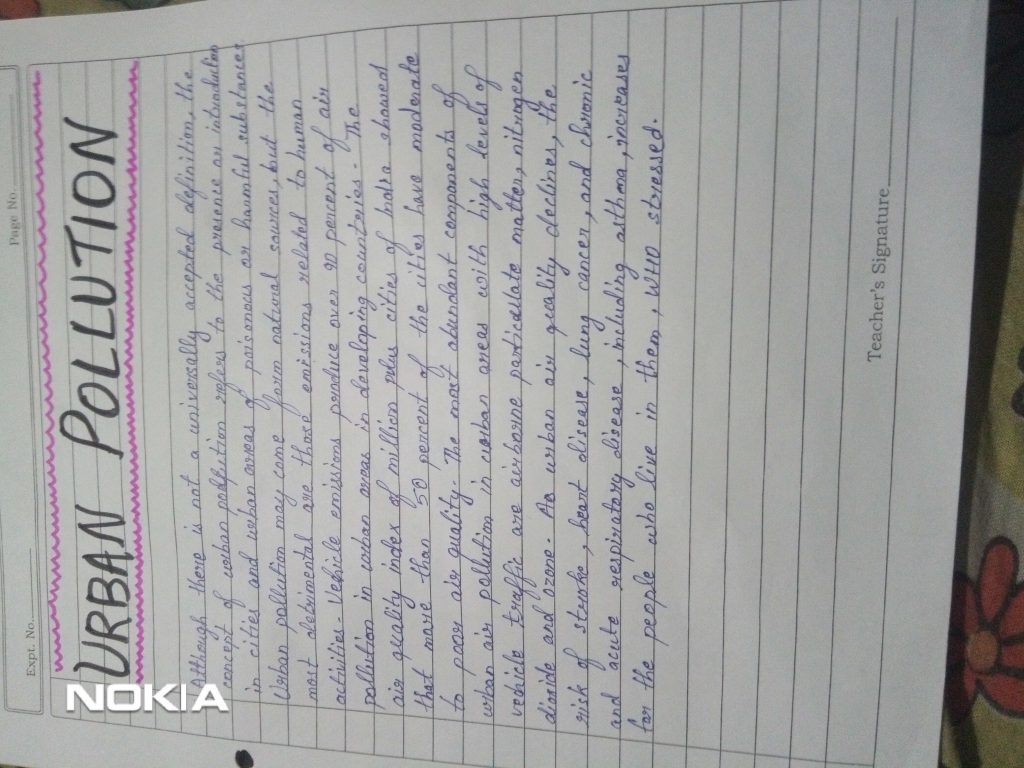 Page No.
Expt. No.
URBAN POLLUTION
Although there is not a universally accepted definition, the
concept of urban pollution refers to the presence an introduction
in cities and urban areas of poisonous or harmful substances
Urban pollution may cone form natural sources, but the
most detrimental are those emissions related to human
activities. Vehicle emissions produce over 90 percent of air
pollution in urban areas in developing counteries. The
air quality index of million plus cities of India showed
that more than 50 percent of the cities have moderate
to poor air quality. The most abundant components of
urban air pollution in urban areas with high levels of
vehicle traffic are airborne particulate matter, nitrogen
dioxide and ozone. As urban air quality declines, the
risk of stroke, heart disease, lung cancer, and chronic
and acute respiratory disease, including asthma, increases
for the people who live in them, WHO stressed.
Teacher's Signature
NOKIA